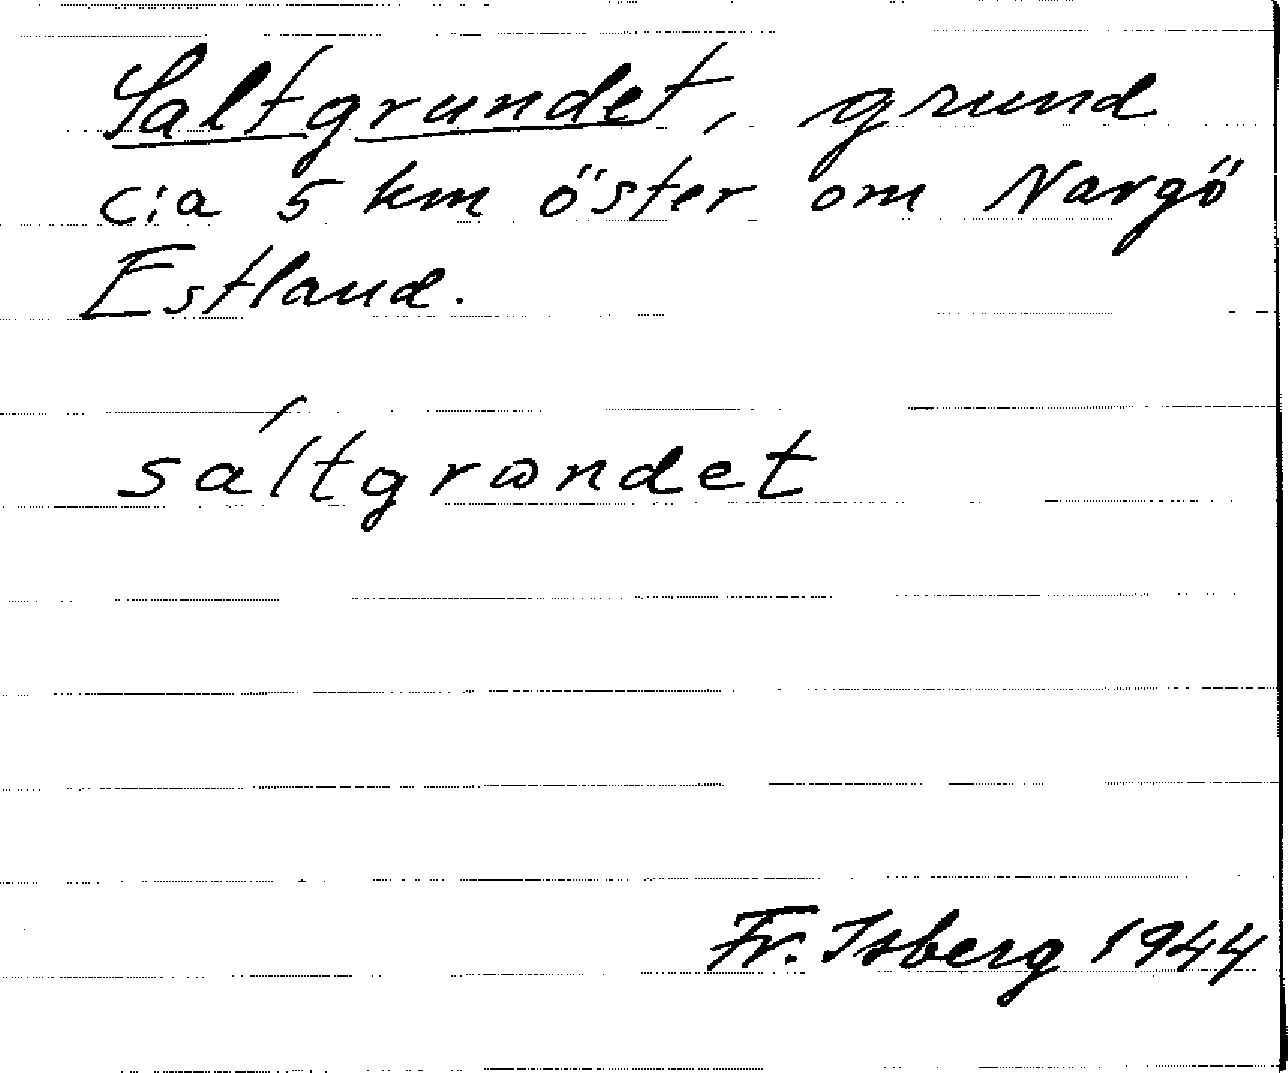 Saltgrundet, grund
c:a 5 km öster om Nargö
Estland.
sáltgrωndet
Fr. Isberg 1944